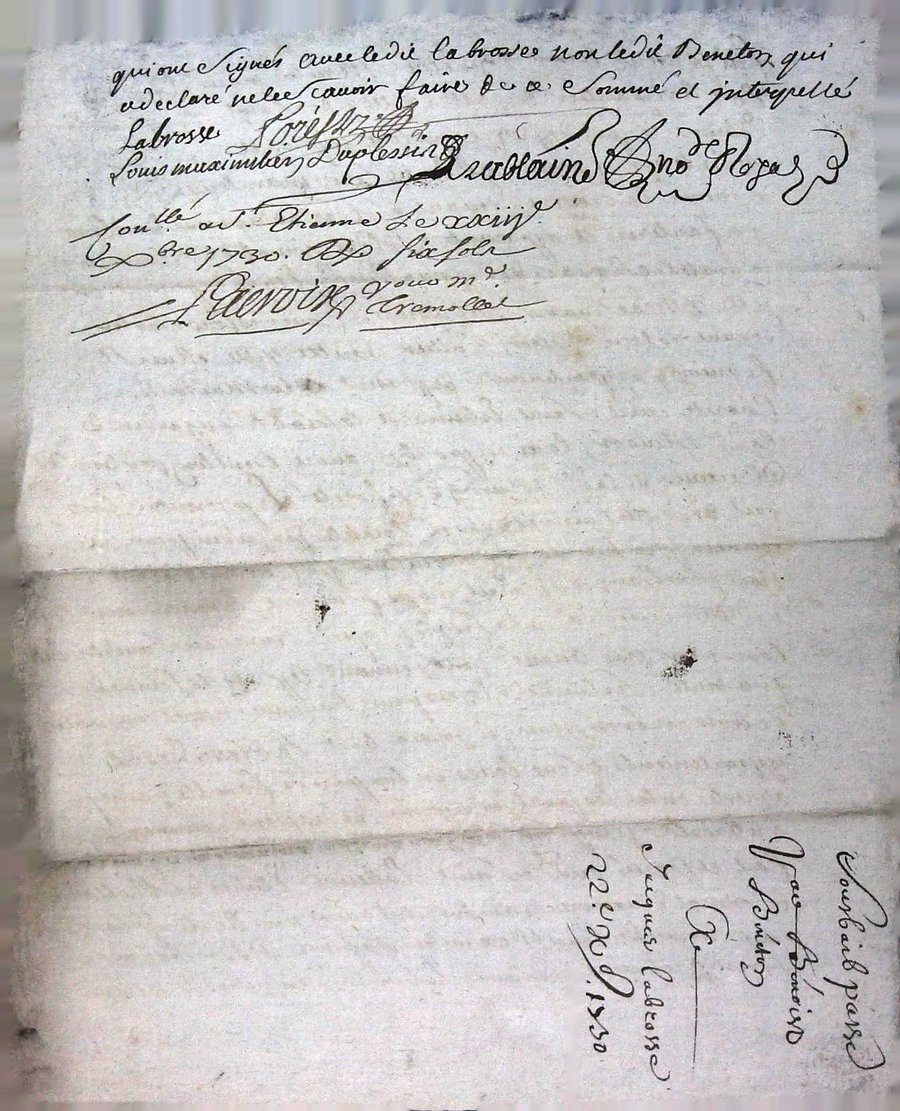 qui ont Signés avec ledit labrosse non ledit Beneton qui
a declaré ne le Scavoir faire de ce Sommé et interpellé
Labrosse
Louis maximilien Duplessis Sablain no.re Royal
Con.llé a S.t Etienne Le xxiij.e
xbre 1730. Rx six solz
pour m.r
Tremollet
Sousbail passé
par Bénoist
Bénéton
A
Jacques labrosse
22.e xb. 1730